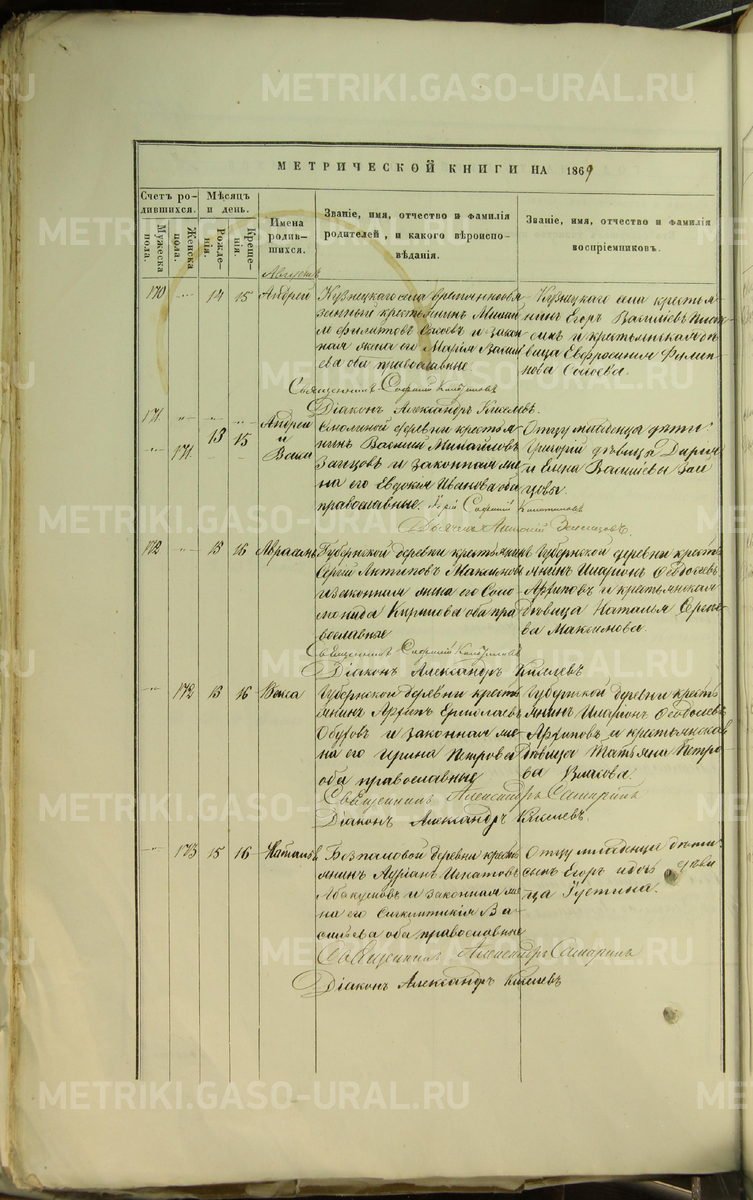 METRIKI.GASO-URAL.RU
МЕТРИЧЕСКОЙ КНИГИ НА 1869
Счетъ родившихся.
Мужеска пола.
Женска пола.
Мѣсяцъ и день.
Рожденія.
Крещенія.
Имена родившихся.
Званіе, имя, отчество и фамилія родителей, и какого вѣроисповѣданія.
Званіе, имя, отчество и фамилія воспріемниковъ.
Августъ
170 " 14 15 Андрей
Кузнецкаго села временнообя
занный крестьянинъ
и закон
ная жена его Марія Васил
ева оба православные
Кузнецкаго села крестья
нинъ Егоръ Васильевъ
и крестьянская дѣ
вица Евфросинія Филип
пова
Священникъ
Діаконъ Александръ Киселевъ.
171 " 13 15 Андрей
" 171 и Васса
деревни крестья
нинъ Василій Михайловъ
Заицовъ и законная же
на его Евдокія Иванова оба
православные.
Отцу младенца дѣти:
Григорій дѣвицы Дарія
и Елена Васильевы Заи
цовы.
172 " 15 16 Авраамъ
Губернской деревни крестьянинъ
Сергій Антиповъ Максимовъ
и законная жена его Соло
монида Кирилова оба пра
вославные
Губернской деревни кресть
янинъ Иларіонъ Ѳеодосіевъ
Архиповъ и крестьянская
дѣвица Наталья Сергѣ
ева Максимова.
Діаконъ Александръ Киселевъ
" 172 15 16 Васса
Губернской деревни кресть
янинъ Архипъ Ермолаевъ
Обуховъ и законная же
на его Ирина Петрова
оба православные
Губернской деревни кресть
янинъ Иларіонъ Ѳеодосіевъ
Архиповъ и крестьянская
дѣвица Татьяна Петро
ва Власова.
Священникъ Александръ Самаринъ
Діаконъ Александръ Киселевъ.
" 173 15 16 Наталья
Безпаловой деревни кресть
янинъ Адріанъ Игнатовъ
Абакумовъ и законная же
на его Синклитикія Ва
сильева оба православные
Отцу младенца дѣти:
сынъ Егоръ и дочь дѣви
ца Іустина.
Священникъ Александръ Самаринъ
Діаконъ Александръ Киселевъ